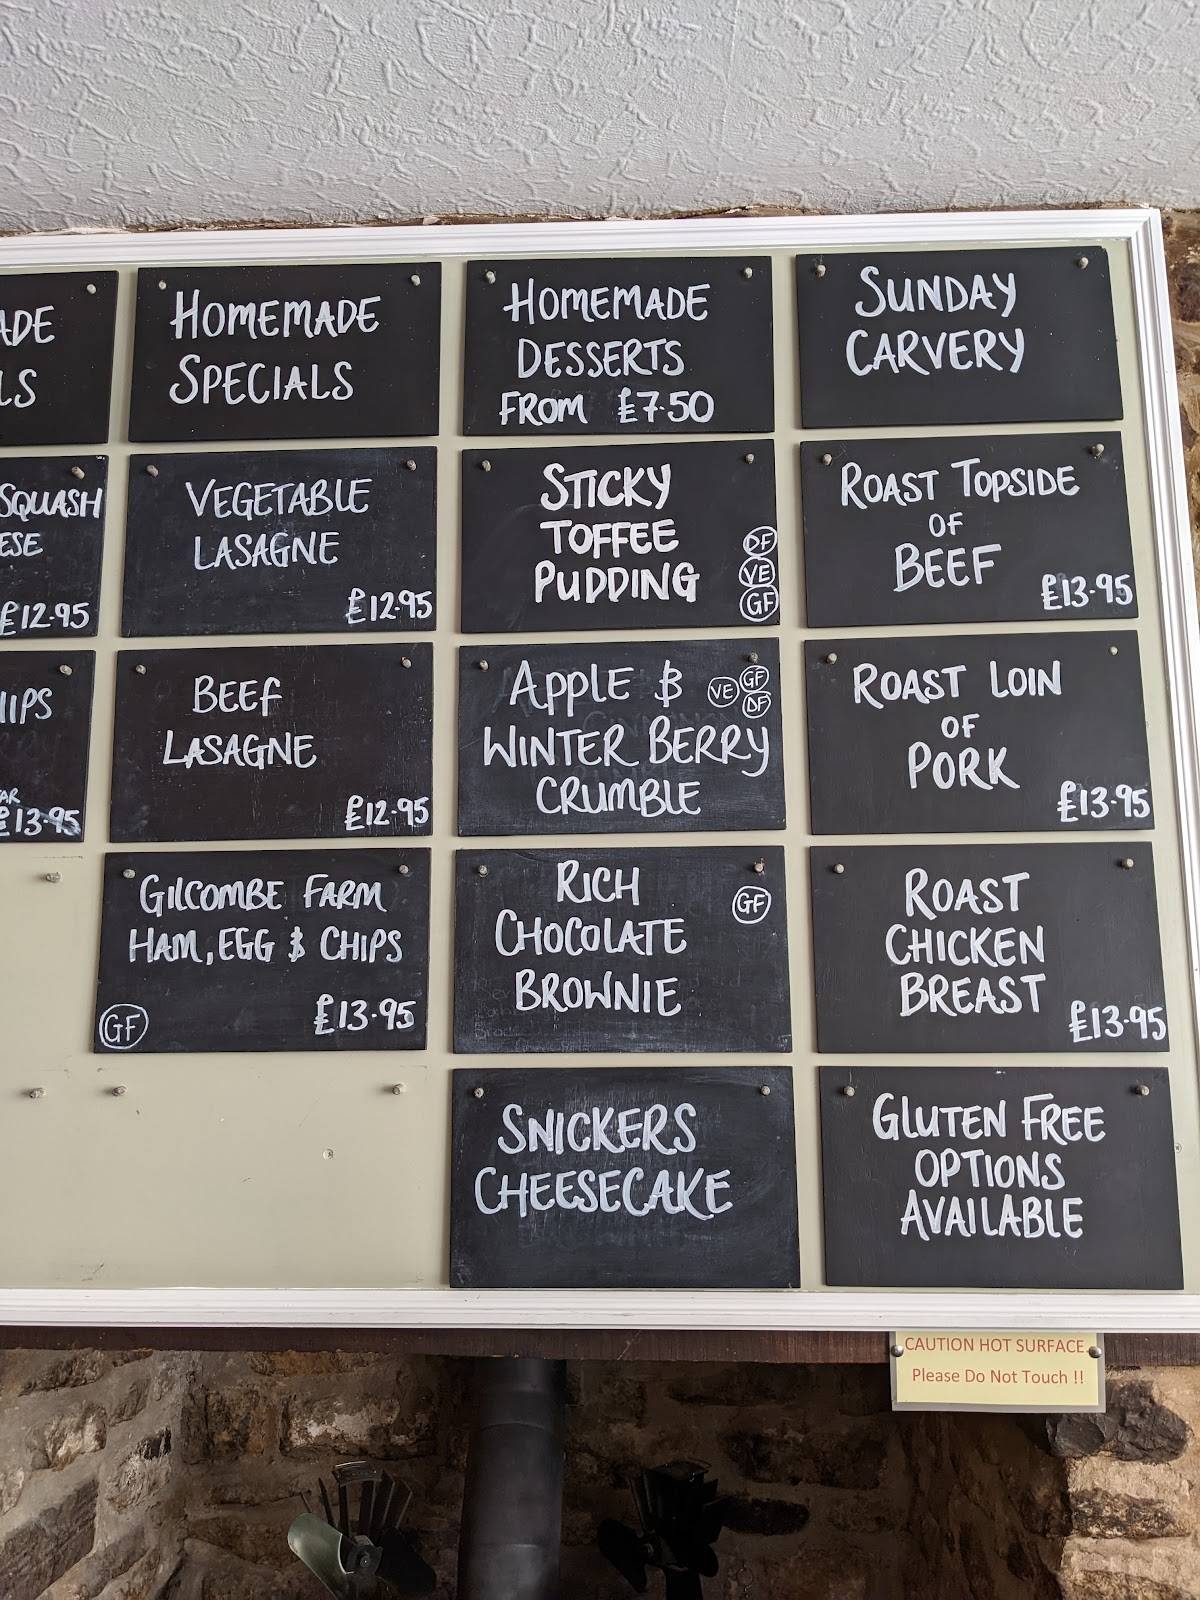 ADE
LS
SQUASH
ESE
£12.95
HIPS
AR
£13.95
HOMEMADE
SPECIALS
VEGETABLE
LASAGNE
£12.95
BEEF
LASAGNE
£12.95
GILCOMBE FARM
HAM, EGG & CHIPS
£13.95
GF
HOMEMADE
DESSERTS
FROM £7.50
STICKY
TOFFEE
PUDDING
DF
VE
GF
APPLE &
VE GF DF
WINTER BERRY
CRUMBLE
RICH
CHOCOLATE
BROWNIE
GF
SNICKERS
CHEESECAKE
SUNDAY
CARVERY
ROAST TOPSIDE
OF
BEEF
£13.95
ROAST LOIN
OF
PORK
£13.95
ROAST
CHICKEN
BREAST
£13.95
GLUTEN FREE
OPTIONS
AVAILABLE
CAUTION HOT SURFACE
Please Do Not Touch !!